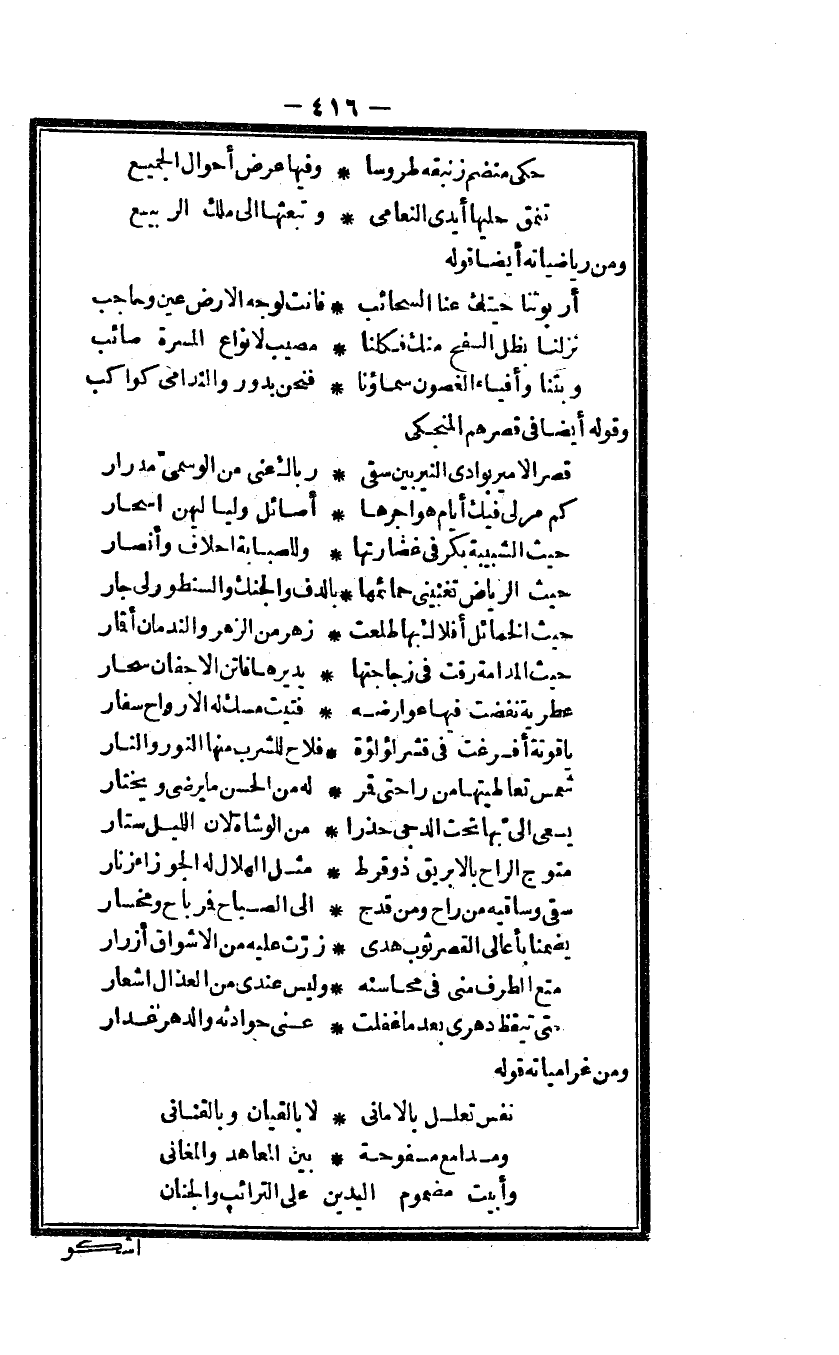 — ٤١٦ —
حكى منضم زنبقه طروسا * وفيها عرض أحوال الجميع
تنمق حليها أيدى النعامى * وتبعثها الى ملك الربيع
ومن رياضياته أيضا قوله
أربوتنا حيتك عنا السحائب * فانت لوجه الارض عين وحاجب
نزلنا بظل السفح منك فكلنا * مصيب لانواع المسرة صائب
وبتنا وأفياء الغصون سماؤنا * فنحن بدور والندامى كواكب
وقوله أيضا فى قصرهم المنجكى
قصر الامير بوادى النيربين سقى * رباك عنى من الوسمىّ مدرار
كم مر لى فيك أيام هواجرها * أصائل وليا لهن اسحار
حيث الشبيبة بكر فى غضارتها * وللصبابة احلاف وأنصار
حيث الرياض تغنينى حمائمها * بالدف والجنك والسنطور لى جار
حيث الخمائل أفلاك بها طلعت * زهر من الزهر والندمان أقمار
حيث المدامة رقت فى زجاجتها * يديرها فاتن الاجفان سحار
عطرية نفضت فيها عوارضه * فتيت مسك له الارواح سفار
ياقوتة أفرغت فى قشر لؤلؤة * فلاح للشرب منها النور والنار
شمس تعاطيتها من راحتى قمر * له من الحسن ما يرضى ويختار
يسعى الىّ بها تحت الدجى حذرا * من الوشاة لان الليل ستار
متوج الراح بالابريق ذو قرط * مثل الهلال له الجوزاء زنار
سقى وساقيه من راح ومن قدح * الى الصباح فرباح ومخسار
يضمنا بأعالى القصر ثوب هدى * زرّت عليه من الاشواق أزرار
متع الطرف منى فى محاسنه * وليس عندى من العذال اشعار
حتى تيقظ دهرى بعد ما غفلت * عنى حوادثه والدهر غدار
ومن غرامياته قوله
نفس تعلل بالامانى * لا بالقيان وبالقنانى
ومدامع مسفوحة * بين المعاهد والمغانى
وأبيت مضموم اليدين على الترائب والجنان
اشكو